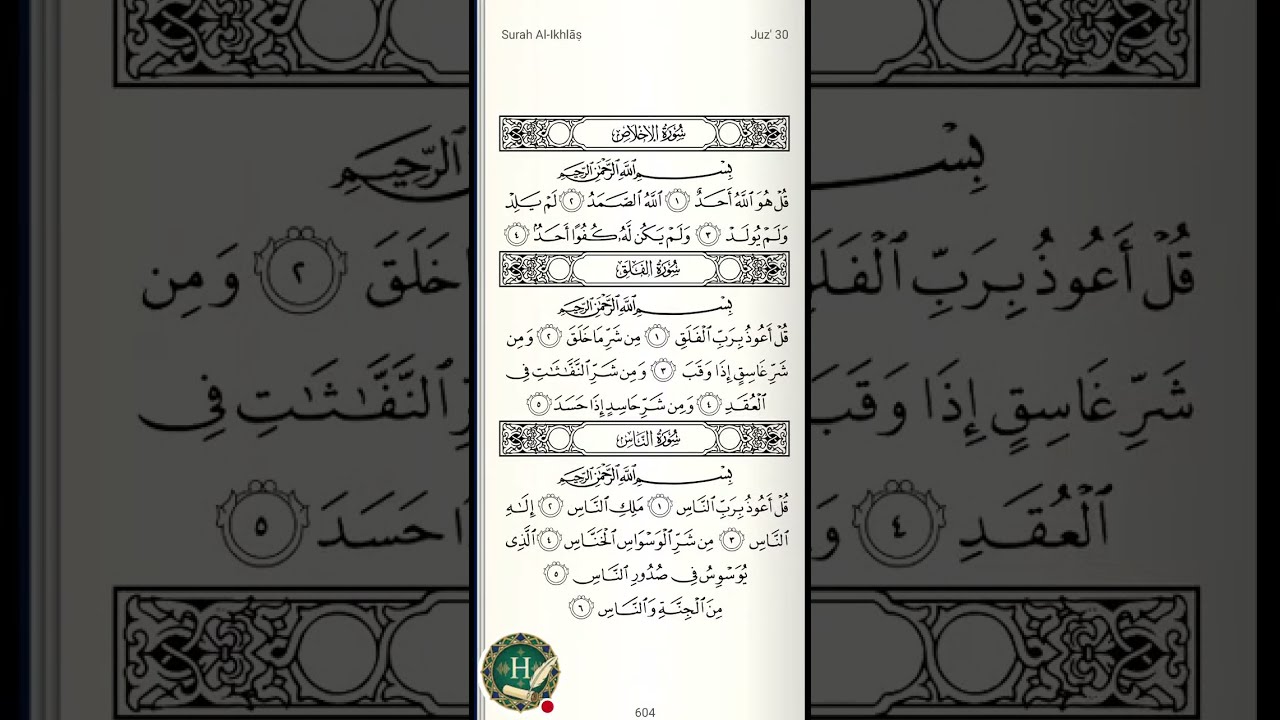 Surah Al-Ikhlāṣ Juz' 30
سُورَةُ الإِخْلَاصِ
بِسْمِ ٱللَّهِ ٱلرَّحْمَٰنِ ٱلرَّحِيمِ
قُلْ هُوَ ٱللَّهُ أَحَدٌ ١ ٱللَّهُ ٱلصَّمَدُ ٢ لَمْ يَلِدْ
وَلَمْ يُولَدْ ٣ وَلَمْ يَكُن لَّهُۥ كُفُوًا أَحَدٌۢ ٤
سُورَةُ الفَلَقِ
بِسْمِ ٱللَّهِ ٱلرَّحْمَٰنِ ٱلرَّحِيمِ
قُلْ أَعُوذُ بِرَبِّ ٱلْفَلَقِ ١ مِن شَرِّ مَا خَلَقَ ٢ وَمِن
شَرِّ غَاسِقٍ إِذَا وَقَبَ ٣ وَمِن شَرِّ ٱلنَّفَّٰثَٰتِ فِى
ٱلْعُقَدِ ٤ وَمِن شَرِّ حَاسِدٍ إِذَا حَسَدَ ٥
سُورَةُ النَّاسِ
بِسْمِ ٱللَّهِ ٱلرَّحْمَٰنِ ٱلرَّحِيمِ
قُلْ أَعُوذُ بِرَبِّ ٱلنَّاسِ ١ مَلِكِ ٱلنَّاسِ ٢ إِلَٰهِ
ٱلنَّاسِ ٣ مِن شَرِّ ٱلْوَسْوَاسِ ٱلْخَنَّاسِ ٤ ٱلَّذِى
يُوَسْوِسُ فِى صُدُورِ ٱلنَّاسِ ٥
مِنَ ٱلْجِنَّةِ وَٱلنَّاسِ ٦
H
604